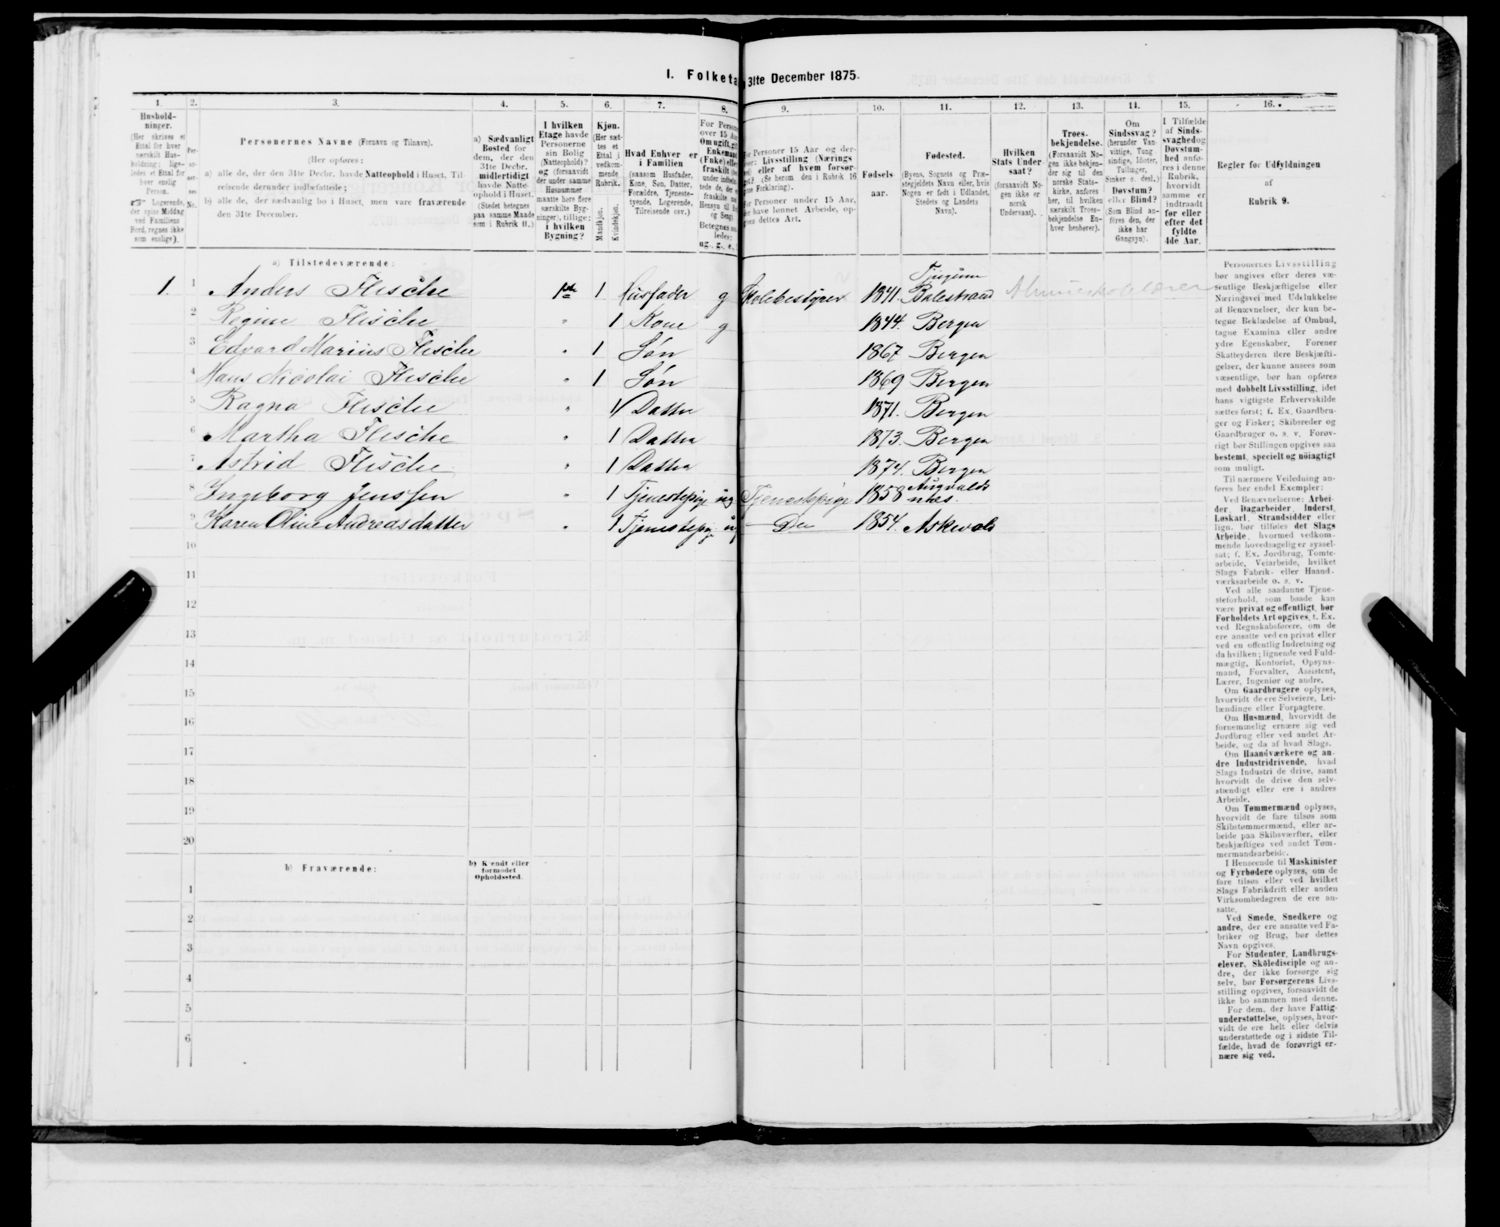 I. Folketa 31te December 1875.
1. 2. 3. 4. 5. 6. 7. 8. 9. 10. 11. 12. 13. 14. 15. 16.
Hushold-
ninger.
(Her skrives et
Ettal for hver
særskilt Hus-
holdning; lige-
ledes et Ettal for
hver enslig
Person.
☞ Logerende,
der spise Middag
ved Familiens
Bord, regnes ikke
som enslige).
Per-
No.
Personernes Navne (Fornavn og Tilnavn).
(Her opføres:
a) alle de, der den 31te Decbr. havde Natteophold i Huset, Til-
reisende derunder indbefattede;
b) alle de, der sædvanlig bo i Huset, men vare fraværende
den 31te December.
a) Sædvanligt
Bosted for
dem, der den
31te Decbr.
midlertidigt
havde Natte-
ophold i Huset.
(Stedet betegnes
paa samme Maade
som i Rubrik 11.)
I hvilken
Etage havde
Personerne
sin Bolig
(Natteophold)?
og (forsaavidt
der under samme
Husnummer
maatte høre flere
særskilte Byg-
ninger), tillige:
i hvilken
Bygning?
Kjøn.
(Her sæt-
tes et
Ettal i
vedkom-
mende
Rubrik.
Mandkjøn.
Kvindekjøn.
Hvad Enhver er
i Familien
(saasom Husfader,
Kone, Søn, Datter,
Forældre, Tjeneste-
tyende, Logerende,
Tilreisende osv.)
For Persone
over 15 Aar
Om ugift, gift
Enkemand
(Enke) eller
fraskilt
ug., g., e.,
For Personer 15 Aar og der-
over: Livsstilling (Nærings
eller af hvem forsør-
get? (Se herom den i Rubrik 16
givne Forklaring).
For Personer under 15 Aar,
der have lønnet Arbeide, op-
gives dettes Art.
Fødsels
aar.
Fødested.
(Byens, Sognets og Præ-
stegjeldets Navn eller, hvis
Nogen er født i Udlandet,
Stedets og Landets
Navn).
Hvilken
Stats Under-
saat?
(forsaavidt No-
gen ikke er
norsk
Undersaat).
Troes-
bekjendelse.
(Forsaavidt No-
gen ikke bekjen-
der sig til den
norske Stats-
kirke, anføres
her, til hvilken
særskilt Troes-
bekjendelse En-
hver henhører).
Om
Sindssvag?
(herunder Van-
vittige, Tung-
sindige, Idioter,
Tullinger,
Sinker o. desl.)
Døvstum?
eller Blind?
(Som Blind an-
føres den, der
ikke har
Gangsyn).
I Tilfælde
af Sinds-
svaghed og
Døvstum-
hed anfø-
res i denne
Rubrik,
hvorvidt
samme er
indtraadt
før eller
efter det
fyldte
4de Aar.
Regler for Udfyldningen
af
Rubrik 9.
a) Tilstedeværende:
1. 1 Anders Flesche 1ste 1 Husfader g Skolebestyrer 1841. Tjugum Balestrand
2 Regine Flesche " 1 Kone g 1844. Bergen
3 Edvard Marius Flesche " 1 Søn 1867 Bergen
4 Hans Nicolai Flesche " 1 Søn 1869 Bergen
5 Ragna Flesche " 1 Datter 1871. Bergen
6 Martha Flesche " 1 Datter 1873. Bergen
7 Astrid Flesche " 1 Datter 1874. Bergen
8 Ingeborg Jenssen " 1 Tjenestepige ug Tjenestepige 1858 Augvalds
næs.
9 Karen Oline Andreasdatter " 1 Tjenestepig ug Do 1854. Askevold
10
11
12
13
14
15
16
17
18
19
20
b) Fraværende:
b) Kjendt eller
formodet
Opholdssted.
1
2
3
4
5
6
Personernes Livsstilling
bør angives efter deres væ-
sentlige Beskjæftigelse eller
Næringsvei med Udelukkelse
af Benævnelser, der kun be-
tegne Bekladelse af Ombud,
tagne Examina eller andre
ydre Egenskaber. Forener
Skatteyderen flere Beskjæfti-
gelser, der kunne ansees som
væsentlige, bør han opføres
med dobbelt Livsstilling, idet
hans vigtigste Erhvervskilde
sættes først; f. Ex. Gaardbru-
ger og Fisker; Skibsreder og
Gaardbruger o. s. v. Forøv-
rigt bør Stillingen opgives saa
bestemt, specielt og nøiagtigt
som muligt.
Til nærmere Veiledning an-
føres her endel Exempler:
Ved Benævnelserne: Arbei-
der, Dagarbeider, Inderst,
Løskarl, Strandsidder eller
lign. bør tilføies det Slags
Arbeide, hvormed vedkom-
mende hovedsagelig er syssel-
sat; f. Ex. Jordbrug, Tomte-
arbeide, Veiarbeide, hvilket
Slags Fabrik- eller Haand-
værksarbeide o. s. v.
Ved alle saadanne Tjene-
steforhold, som baade kan
være privat og offentligt, bør
Forholdets Art opgives, f. Ex.
ved Regnskabsførere, om de
ere ansatte ved en privat eller
ved en offentlig Indretning og
da hvilken; lignende ved Fuld-
mægtig, Kontorist, Opsyns-
mand, Forvalter, Assistent,
Lærer, Ingeniør og andre.
Om Gaardbrugere oplyses,
hvorvidt de ere Selveiere, Lei-
lændinge eller Forpagtere.
Om Husmænd, hvorvidt de
fornemmelig ernære sig ved
Jordbrug eller ved andet Ar-
beide, og da af hvad Slags.
Om Haandværkere og an-
dre Industridrivende, hvad
Slags Industri de drive, samt
hvorvidt de drive den selv-
stændigt eller ere i andres
Arbeide.
Om Tømmermænd oplyses,
hvorvidt de fare tilsøs som
Skibstømmermænd, eller ar-
beide paa Skibsværfter, eller
beskjæftiges ved andet Tøm-
mermandsarbeide.
I Henseende til Maskinister
og Fyrbødere oplyses, om de
fare tilsøs eller ved hvilket
Slags Fabrikdrift eller anden
Virksomhedsgren de ere an-
satte.
Ved Smede, Snedkere og
andre, der ere ansatte ved Fa-
briker og Brug, bør dettes
Navn opgives.
For Studenter, Landbrugs-
elever, Skoledisciple og an-
dre, der ikke forsørge sig
selv, bør Forsørgerens Livs-
stilling opgives, forsaavidt de
ikke bo sammen med denne.
For dem, der have Fattig-
understøttelse, oplyses, hvor-
vidt de ere helt eller delvis
understøttede og i sidste Til-
fælde, hvad de forøvrigt er-
nære sig ved.